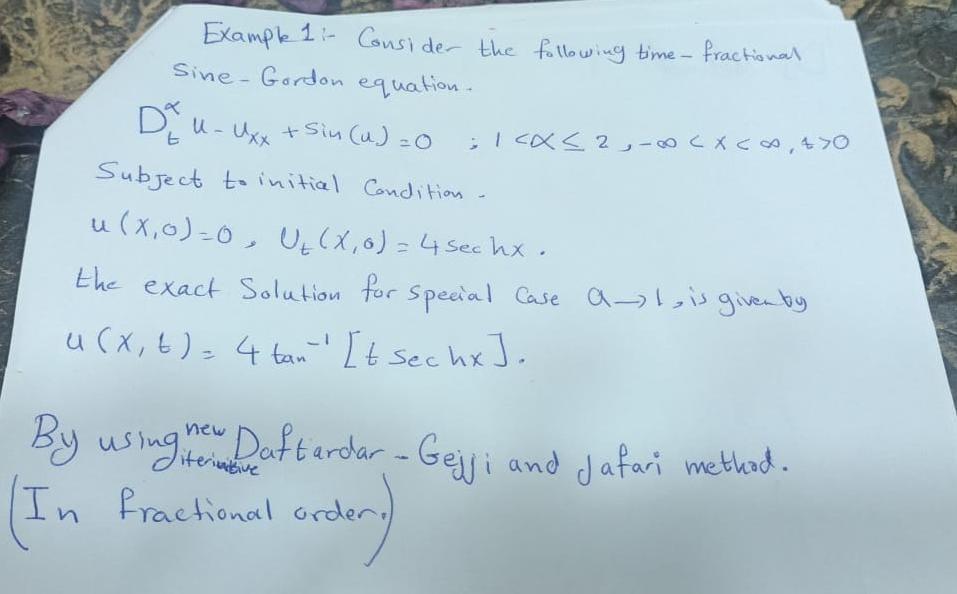 Example 1:- Consider the following time-fractional
Sine-Gordon equation.
D_t^α u - u_xx + Sin(u) = 0 ; 1 < α ≤ 2, -∞ < x < ∞, t > 0
Subject to initial Condition -
u(x,0)=0, U_t(x,0) = 4 sec hx.
the exact Solution for special Case a→1, is given by
u(x,t) = 4 tan⁻¹ [t sec hx].
By using new iterintive Daftardar-Gejji and Jafari method.
(In fractional order.)